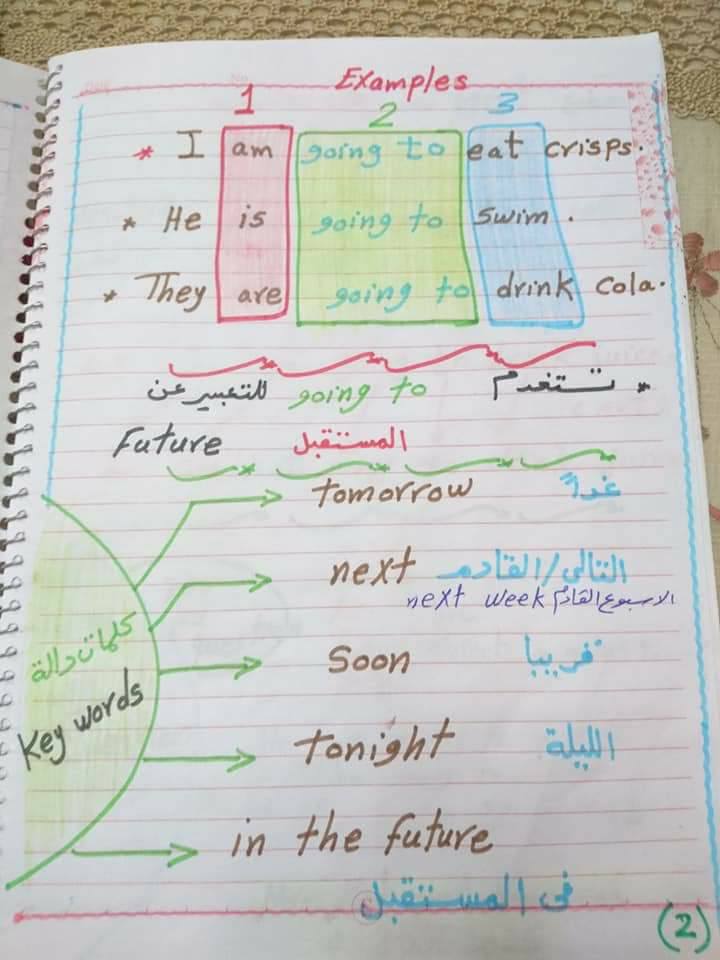 Examples
1 2 3
* I am going to eat crisps.
* He is going to swim.
* They are going to drink cola.
* تستخدم going to للتعبير عن
المستقبل Future
كلمات دالة
Key words
tomorrow غداً
next التالى/القادم
next week الاسبوع القادم
Soon قريبا
tonight الليلة
in the future
فى المستقبل
(2)